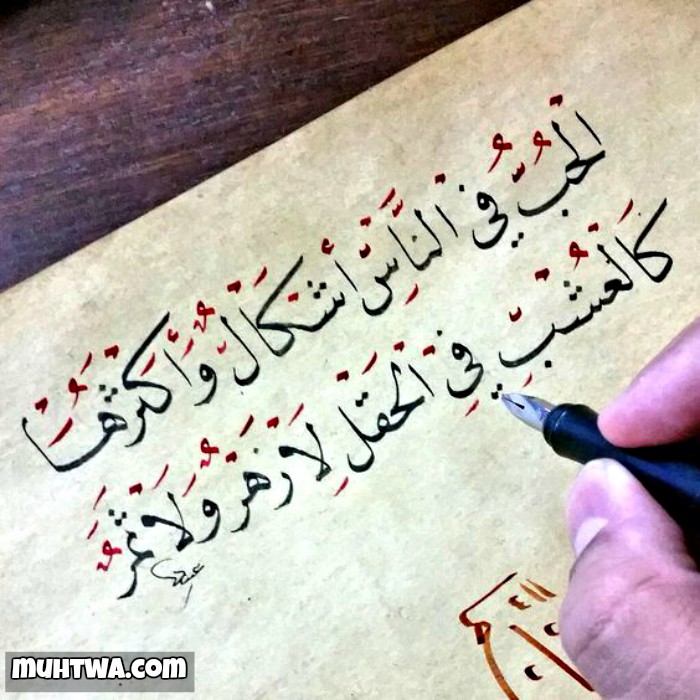 الحُبُّ في النَّاسِ أشكَالٌ وَأكثَرُهَا
كَالعُشْبِ فِي الْحَقْلِ لَا زَهْرٌ وَلَا ثَمَرُ
muhtwa.com